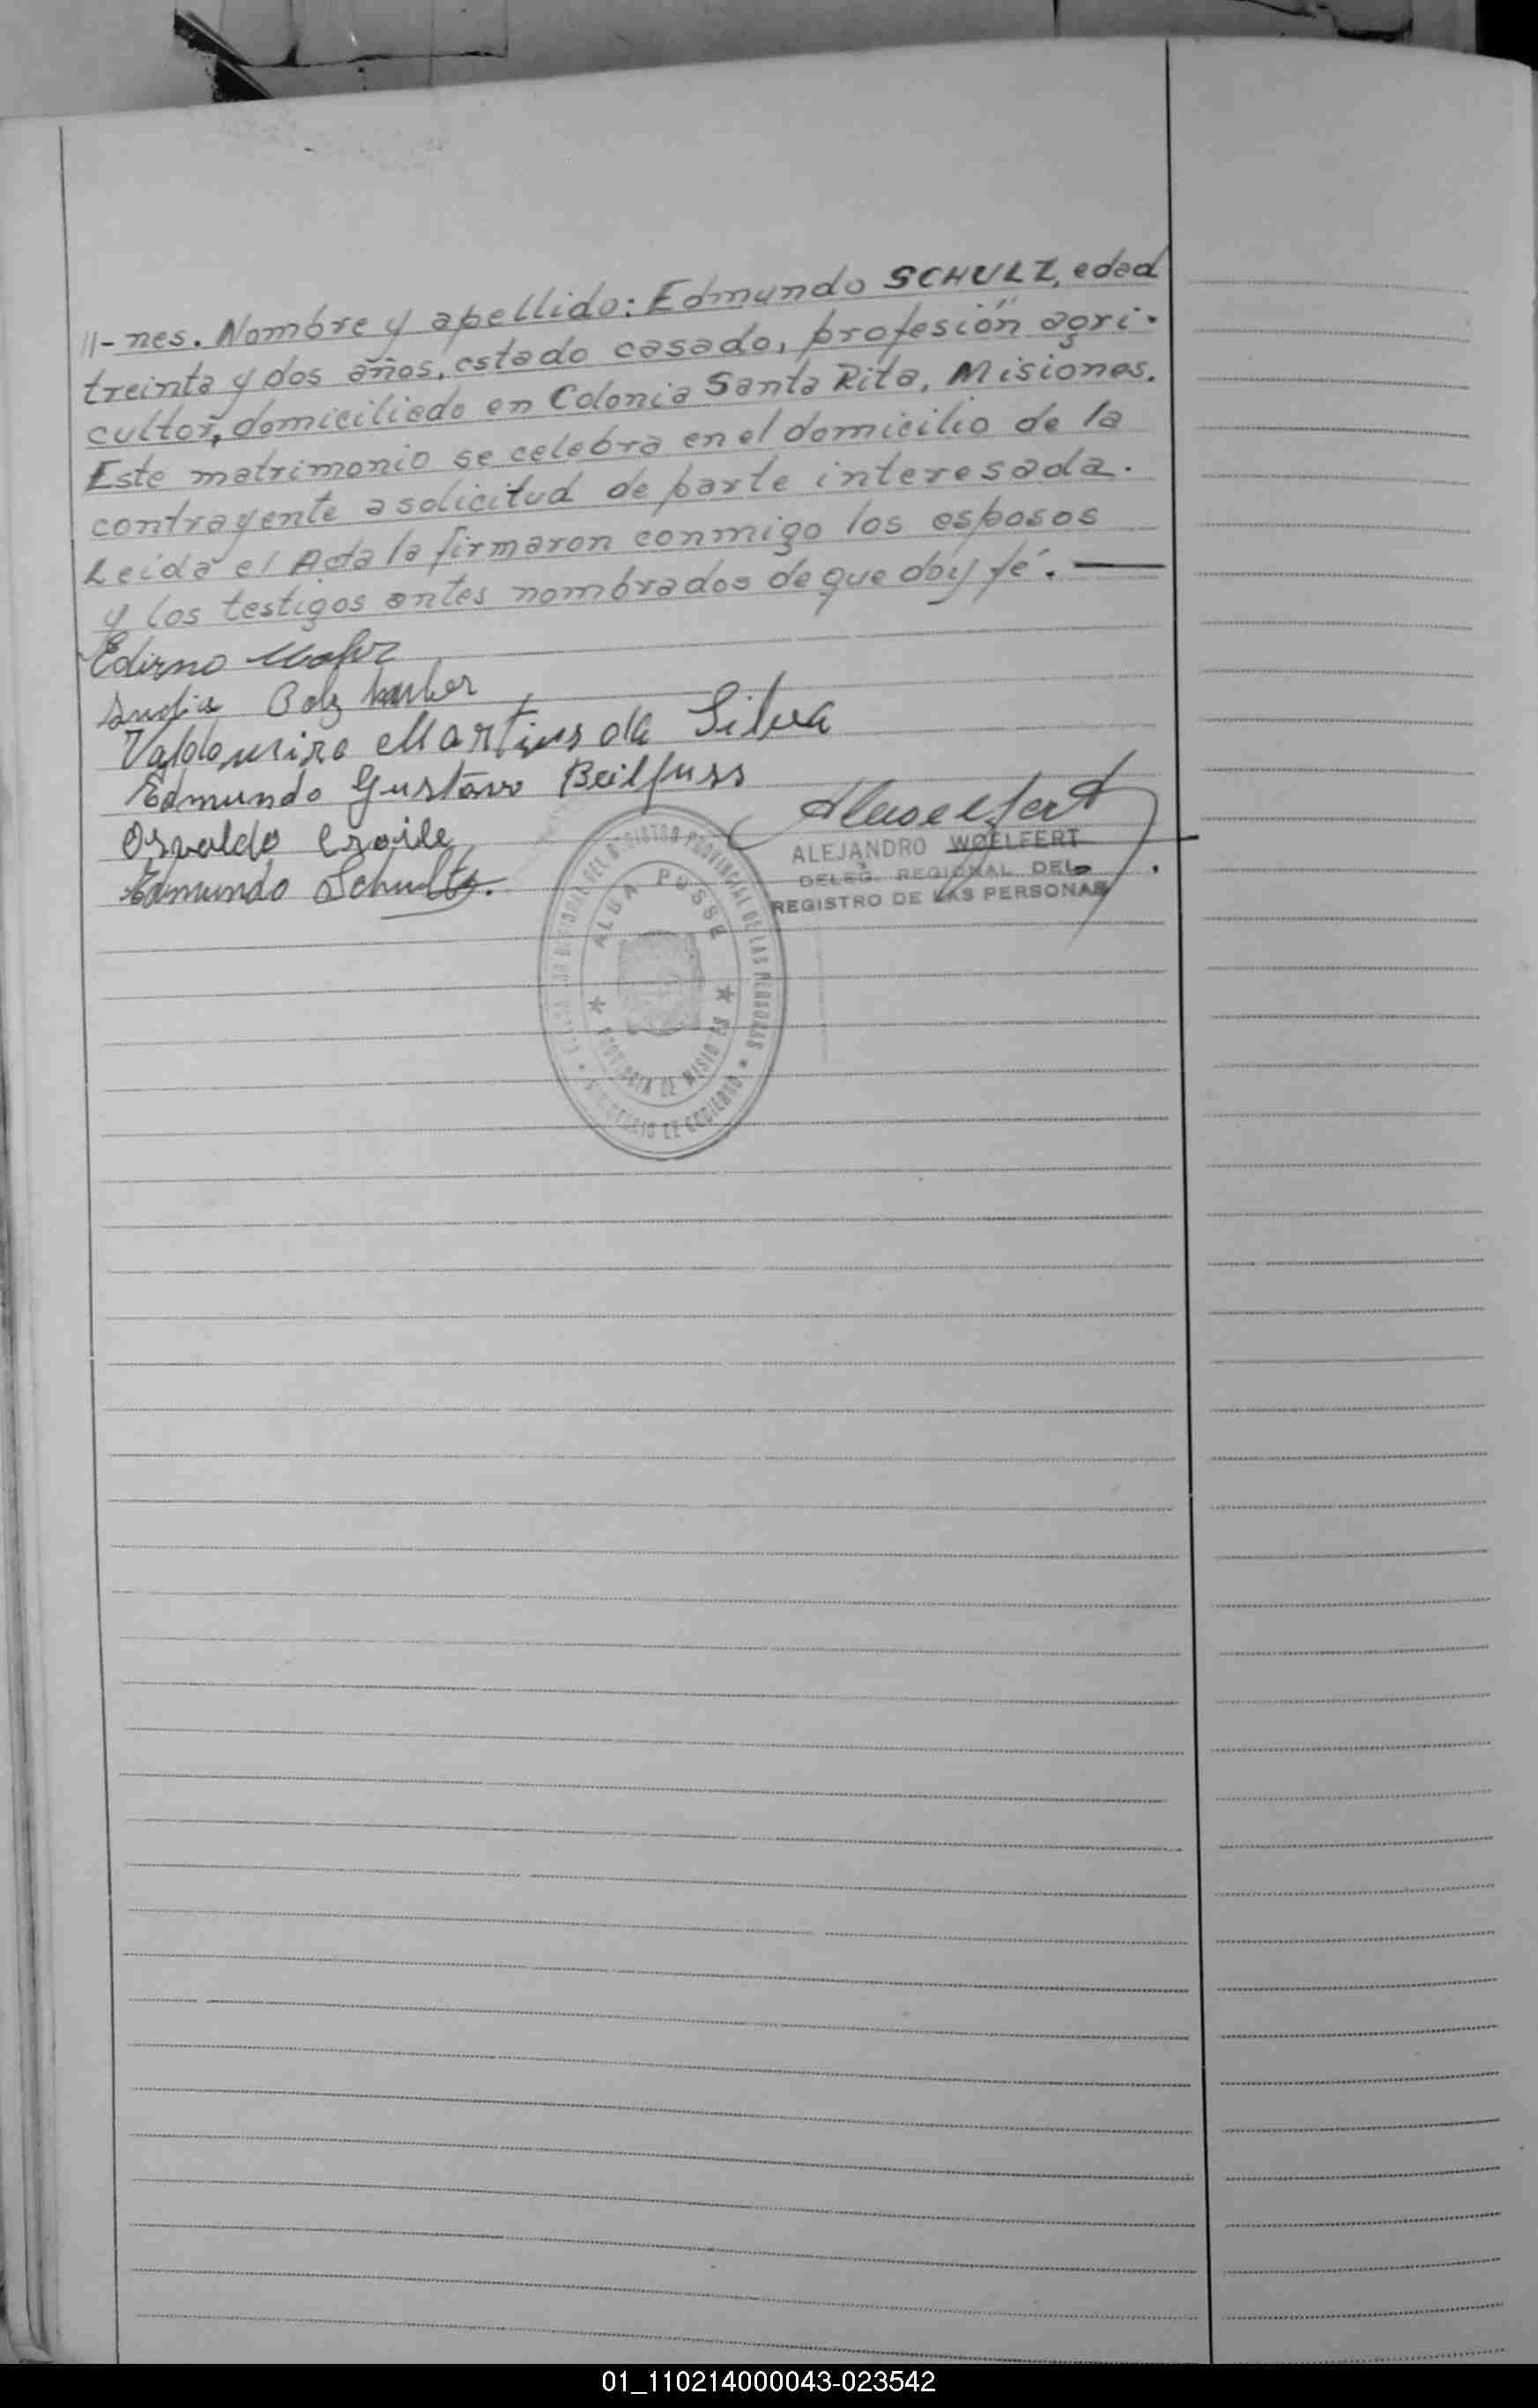 11- nes. Nombre y apellido: Edmundo SCHULZ, edad
treinta y dos años, estado casado, profesión agri-
cultor, domiciliado en Colonia Santa Rita, Misiones.
Este matrimonio se celebra en el domicilio de la
contrayente a solicitud de parte interesada.
Leida el Acta la firmaron conmigo los esposos
y los testigos antes nombrados de que doy fé.
Edirno
Valdomiro Martins da Silva
Edmundo Gustavo Beilfuss
Osvaldo
Edmundo Schultz.
ALEJANDRO WOELFERT
DELEG. REGIONAL DEL
REGISTRO DE LAS PERSONAS
DEL REGISTRO PROVINCIAL DE LAS PERSONAS
ALBA POSSE
PROVINCIA DE MISIONES
MINISTERIO DE GOBIERNO
01_110214000043-023542